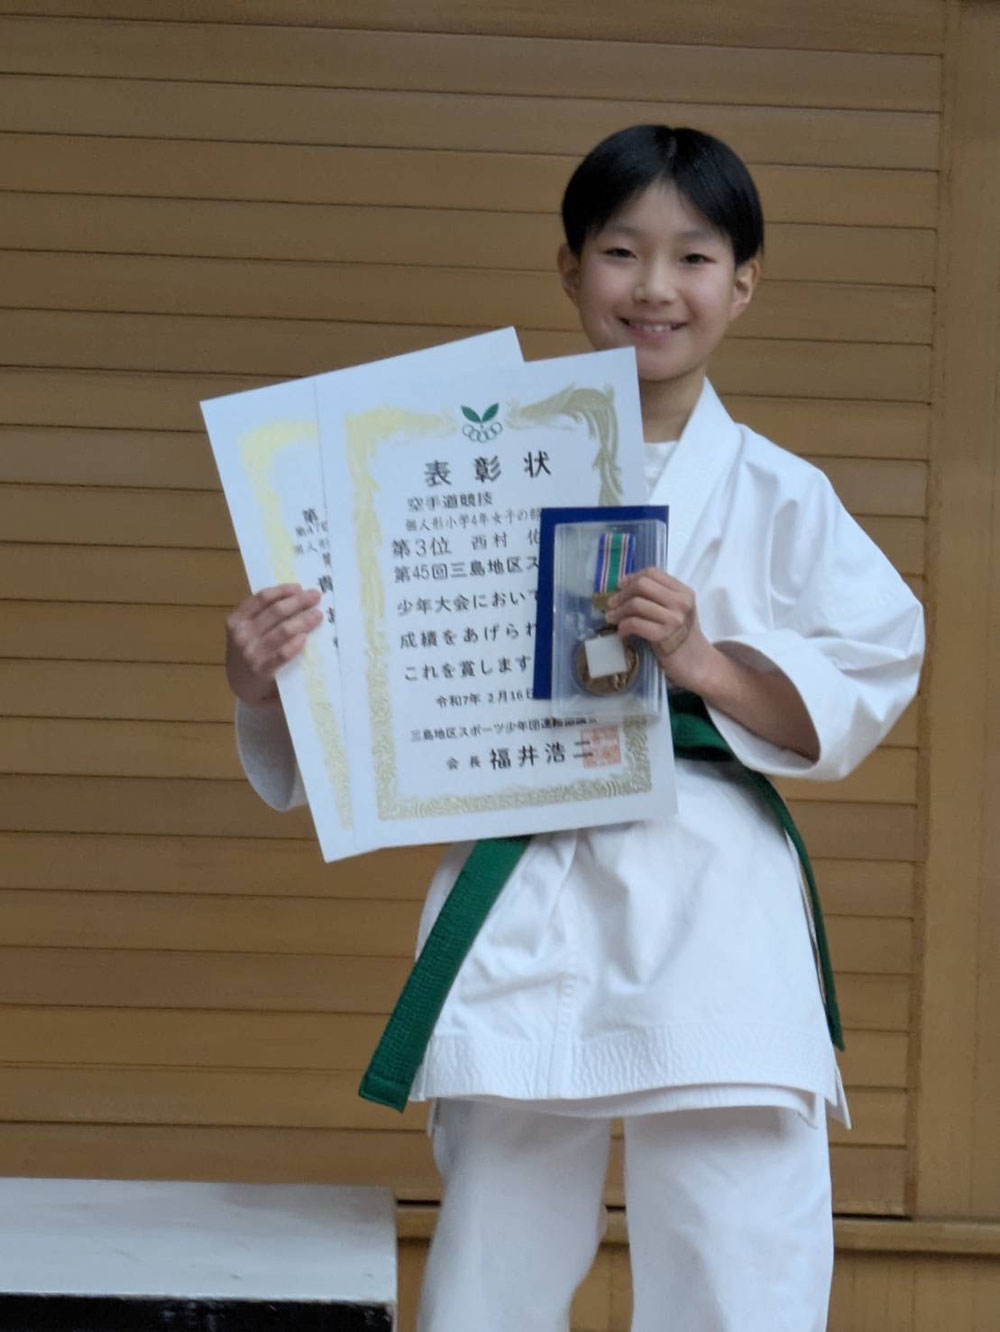 表彰状
空手道競技
個人形小学4年女子の部
第3位 西村 佑
第45回三島地区ス
少年大会において
成績をあげられ
これを賞します
令和7年 2月16日
三島地区スポーツ少年団連絡協議会
会長 福井浩二
第
第47回
個人形
貴